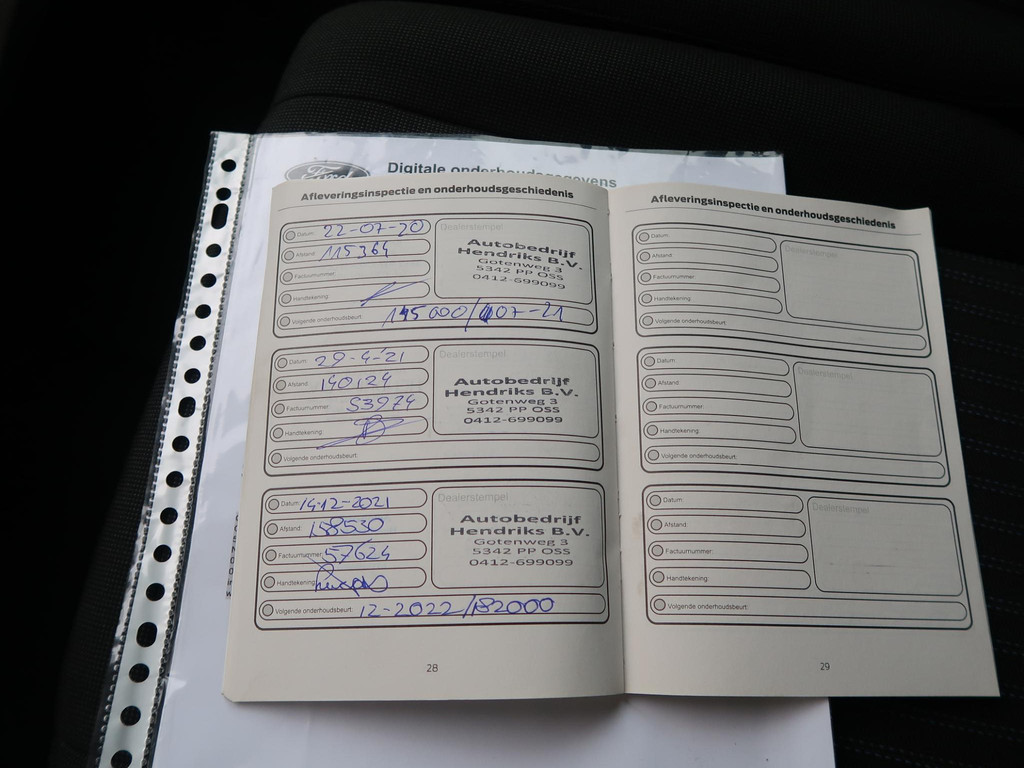 Ford
Digitale onderhoudsgegevens
Afleveringsinspectie en onderhoudsgeschiedenis
Datum: 22-07-20
Afstand: 115364
Factuurnummer:
Handtekening:
Volgende onderhoudsbeurt: 145000/07-21
Dealerstempel
Autobedrijf
Hendriks B.V.
Gotenweg 3
5342 PP OSS
0412-699099
Datum: 29-4-'21
Afstand: 140124
Factuurnummer: 53974
Handtekening:
Volgende onderhoudsbeurt:
Dealerstempel
Autobedrijf
Hendriks B.V.
Gotenweg 3
5342 PP OSS
0412-699099
Datum: 14-12-2021
Afstand: 158530
Factuurnummer: 57624
Handtekening:
Volgende onderhoudsbeurt: 12-2022/182000
Dealerstempel
Autobedrijf
Hendriks B.V.
Gotenweg 3
5342 PP OSS
0412-699099
28
Afleveringsinspectie en onderhoudsgeschiedenis
Datum:
Afstand:
Factuurnummer:
Handtekening:
Volgende onderhoudsbeurt:
Dealerstempel
Datum:
Afstand:
Factuurnummer:
Handtekening:
Volgende onderhoudsbeurt:
Dealerstempel
Datum:
Afstand:
Factuurnummer:
Handtekening:
Volgende onderhoudsbeurt:
Dealerstempel
29